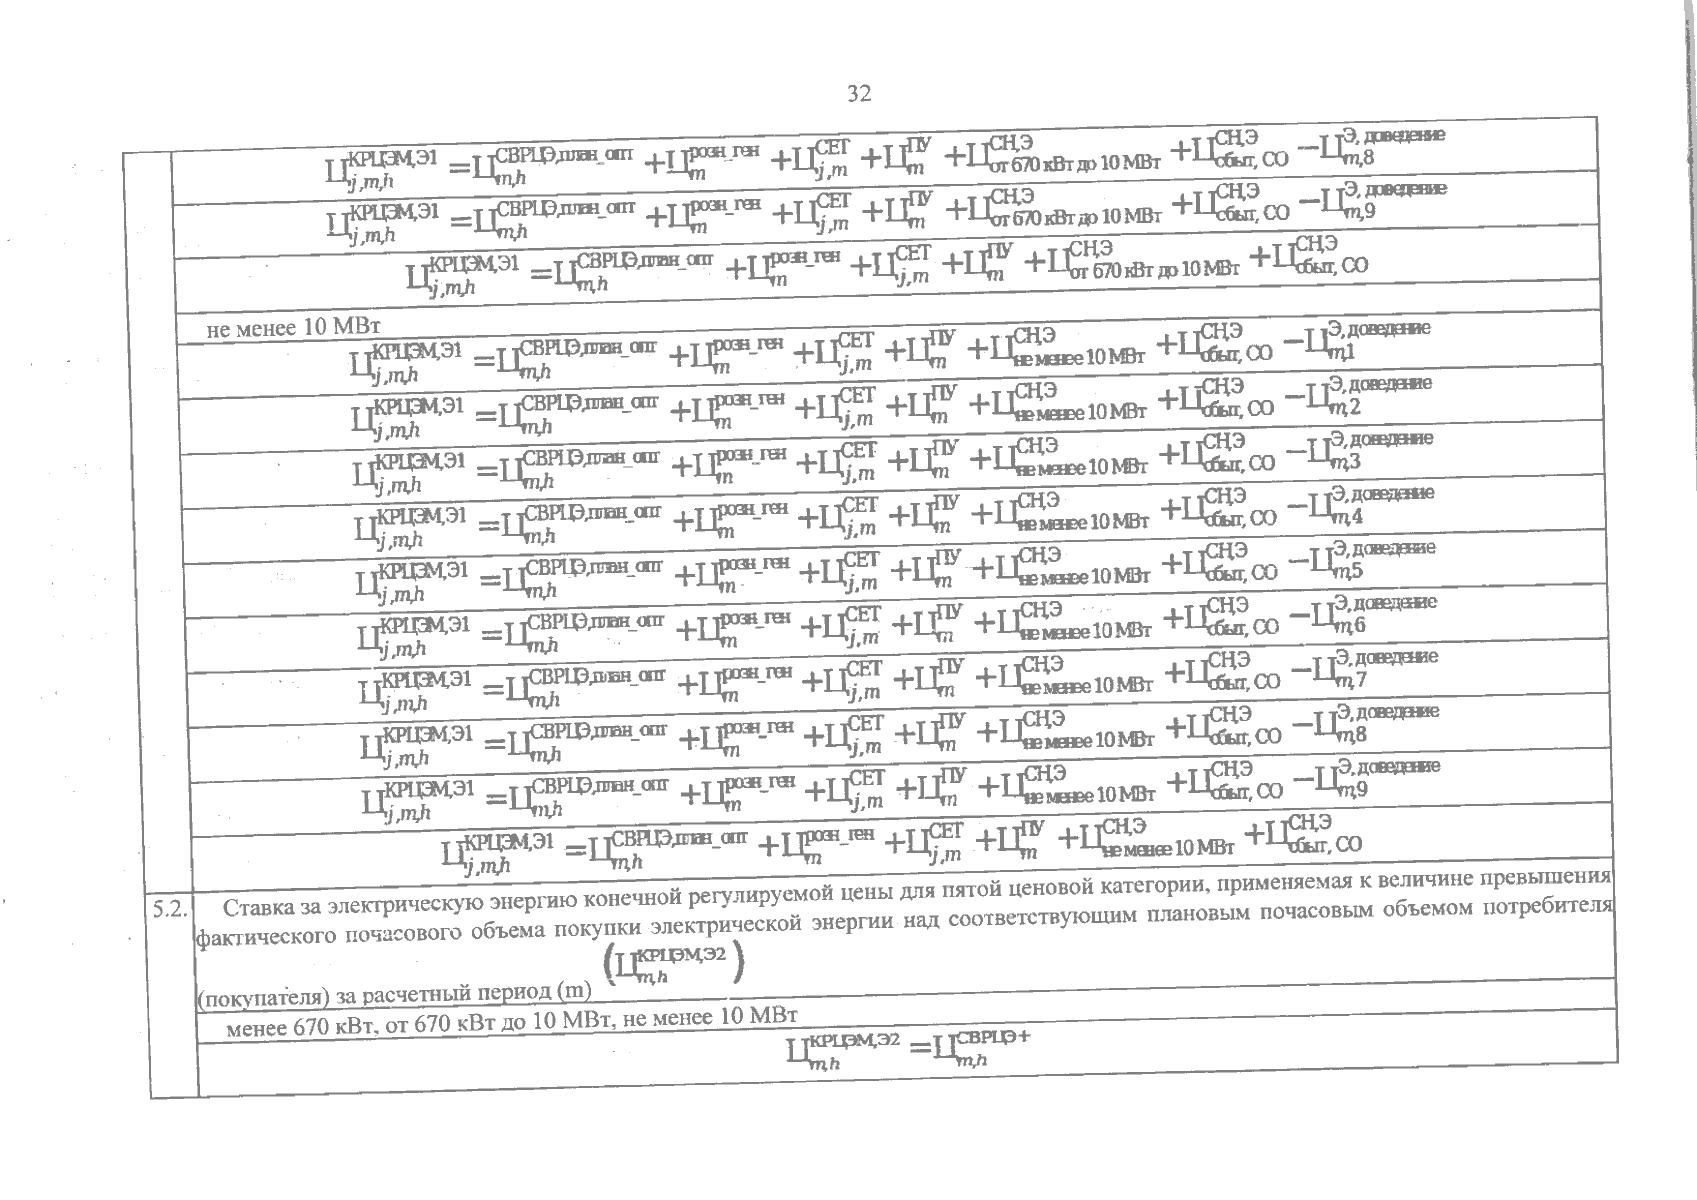 32
Ц_{j,m,h}^{КРЦЭМ,Э1} = Ц_{m,h}^{СВРЦЭ,план_опт} + Ц_m^{розн_ген} + Ц_{j,m}^{СЕТ} + Ц_m^{ПУ} + Ц_{от 670 кВт до 10 МВт}^{СН,Э} + Ц_{сбыт, СО}^{СН,Э} − Ц_{m,8}^{Э, доведение}
Ц_{j,m,h}^{КРЦЭМ,Э1} = Ц_{m,h}^{СВРЦЭ,план_опт} + Ц_m^{розн_ген} + Ц_{j,m}^{СЕТ} + Ц_m^{ПУ} + Ц_{от 670 кВт до 10 МВт}^{СН,Э} + Ц_{сбыт, СО}^{СН,Э} − Ц_{m,9}^{Э, доведение}
Ц_{j,m,h}^{КРЦЭМ,Э1} = Ц_{m,h}^{СВРЦЭ,план_опт} + Ц_m^{розн_ген} + Ц_{j,m}^{СЕТ} + Ц_m^{ПУ} + Ц_{от 670 кВт до 10 МВт}^{СН,Э} + Ц_{сбыт, СО}^{СН,Э}
не менее 10 МВт
Ц_{j,m,h}^{КРЦЭМ,Э1} = Ц_{m,h}^{СВРЦЭ,план_опт} + Ц_m^{розн_ген} + Ц_{j,m}^{СЕТ} + Ц_m^{ПУ} + Ц_{не менее 10 МВт}^{СН,Э} + Ц_{сбыт, СО}^{СН,Э} − Ц_{m,1}^{Э, доведение}
Ц_{j,m,h}^{КРЦЭМ,Э1} = Ц_{m,h}^{СВРЦЭ,план_опт} + Ц_m^{розн_ген} + Ц_{j,m}^{СЕТ} + Ц_m^{ПУ} + Ц_{не менее 10 МВт}^{СН,Э} + Ц_{сбыт, СО}^{СН,Э} − Ц_{m,2}^{Э, доведение}
Ц_{j,m,h}^{КРЦЭМ,Э1} = Ц_{m,h}^{СВРЦЭ,план_опт} + Ц_m^{розн_ген} + Ц_{j,m}^{СЕТ} + Ц_m^{ПУ} + Ц_{не менее 10 МВт}^{СН,Э} + Ц_{сбыт, СО}^{СН,Э} − Ц_{m,3}^{Э, доведение}
Ц_{j,m,h}^{КРЦЭМ,Э1} = Ц_{m,h}^{СВРЦЭ,план_опт} + Ц_m^{розн_ген} + Ц_{j,m}^{СЕТ} + Ц_m^{ПУ} + Ц_{не менее 10 МВт}^{СН,Э} + Ц_{сбыт, СО}^{СН,Э} − Ц_{m,4}^{Э, доведение}
Ц_{j,m,h}^{КРЦЭМ,Э1} = Ц_{m,h}^{СВРЦЭ,план_опт} + Ц_m^{розн_ген} + Ц_{j,m}^{СЕТ} + Ц_m^{ПУ} + Ц_{не менее 10 МВт}^{СН,Э} + Ц_{сбыт, СО}^{СН,Э} − Ц_{m,5}^{Э, доведение}
Ц_{j,m,h}^{КРЦЭМ,Э1} = Ц_{m,h}^{СВРЦЭ,план_опт} + Ц_m^{розн_ген} + Ц_{j,m}^{СЕТ} + Ц_m^{ПУ} + Ц_{не менее 10 МВт}^{СН,Э} + Ц_{сбыт, СО}^{СН,Э} − Ц_{m,6}^{Э, доведение}
Ц_{j,m,h}^{КРЦЭМ,Э1} = Ц_{m,h}^{СВРЦЭ,план_опт} + Ц_m^{розн_ген} + Ц_{j,m}^{СЕТ} + Ц_m^{ПУ} + Ц_{не менее 10 МВт}^{СН,Э} + Ц_{сбыт, СО}^{СН,Э} − Ц_{m,7}^{Э, доведение}
Ц_{j,m,h}^{КРЦЭМ,Э1} = Ц_{m,h}^{СВРЦЭ,план_опт} + Ц_m^{розн_ген} + Ц_{j,m}^{СЕТ} + Ц_m^{ПУ} + Ц_{не менее 10 МВт}^{СН,Э} + Ц_{сбыт, СО}^{СН,Э} − Ц_{m,8}^{Э, доведение}
Ц_{j,m,h}^{КРЦЭМ,Э1} = Ц_{m,h}^{СВРЦЭ,план_опт} + Ц_m^{розн_ген} + Ц_{j,m}^{СЕТ} + Ц_m^{ПУ} + Ц_{не менее 10 МВт}^{СН,Э} + Ц_{сбыт, СО}^{СН,Э} − Ц_{m,9}^{Э, доведение}
Ц_{j,m,h}^{КРЦЭМ,Э1} = Ц_{m,h}^{СВРЦЭ,план_опт} + Ц_m^{розн_ген} + Ц_{j,m}^{СЕТ} + Ц_m^{ПУ} + Ц_{не менее 10 МВт}^{СН,Э} + Ц_{сбыт, СО}^{СН,Э}
5.2. Ставка за электрическую энергию конечной регулируемой цены для пятой ценовой категории, применяемая к величине превышения
фактического почасового объема покупки электрической энергии над соответствующим плановым почасовым объемом потребителя
(покупателя) за расчетный период (m) (Ц_{m,h}^{КРЦЭМ,Э2})
менее 670 кВт, от 670 кВт до 10 МВт, не менее 10 МВт
Ц_{m,h}^{КРЦЭМ,Э2} = Ц_{m,h}^{СВРЦЭ+}